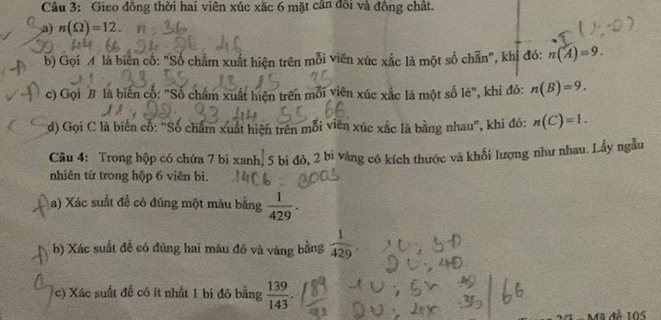 Câu 3: Gieo đồng thời hai viên xúc xắc 6 mặt cân đối và đồng chất.
a) n(Ω)=12. n = 36
22, 44, 66, 24, 26, 46
b) Gọi A là biến cố: "Số chấm xuất hiện trên mỗi viên xúc xắc là một số chẵn", khi đó: n(A)=9.
11, 33, 55, 13, 15, 35
c) Gọi B là biến cố: "Số chấm xuất hiện trên mỗi viên xúc xắc là một số lẻ", khi đó: n(B)=9.
11, 22, 33, 44, 55, 66
d) Gọi C là biến cố: "Số chấm xuất hiện trên mỗi viên xúc xắc là bằng nhau", khi đó: n(C)=1.
Câu 4: Trong hộp có chứa 7 bi xanh, 5 bi đỏ, 2 bi vàng có kích thước và khối lượng như nhau. Lấy ngẫu
nhiên từ trong hộp 6 viên bi. 14C6 = 3003
a) Xác suất để có đúng một màu bằng 1/429.
b) Xác suất để có đúng hai màu đỏ và vàng bằng 1/429. 1V, 5Đ
2V, 4Đ
c) Xác suất để có ít nhất 1 bi đỏ bằng 139/143. 189
Mã đề 105